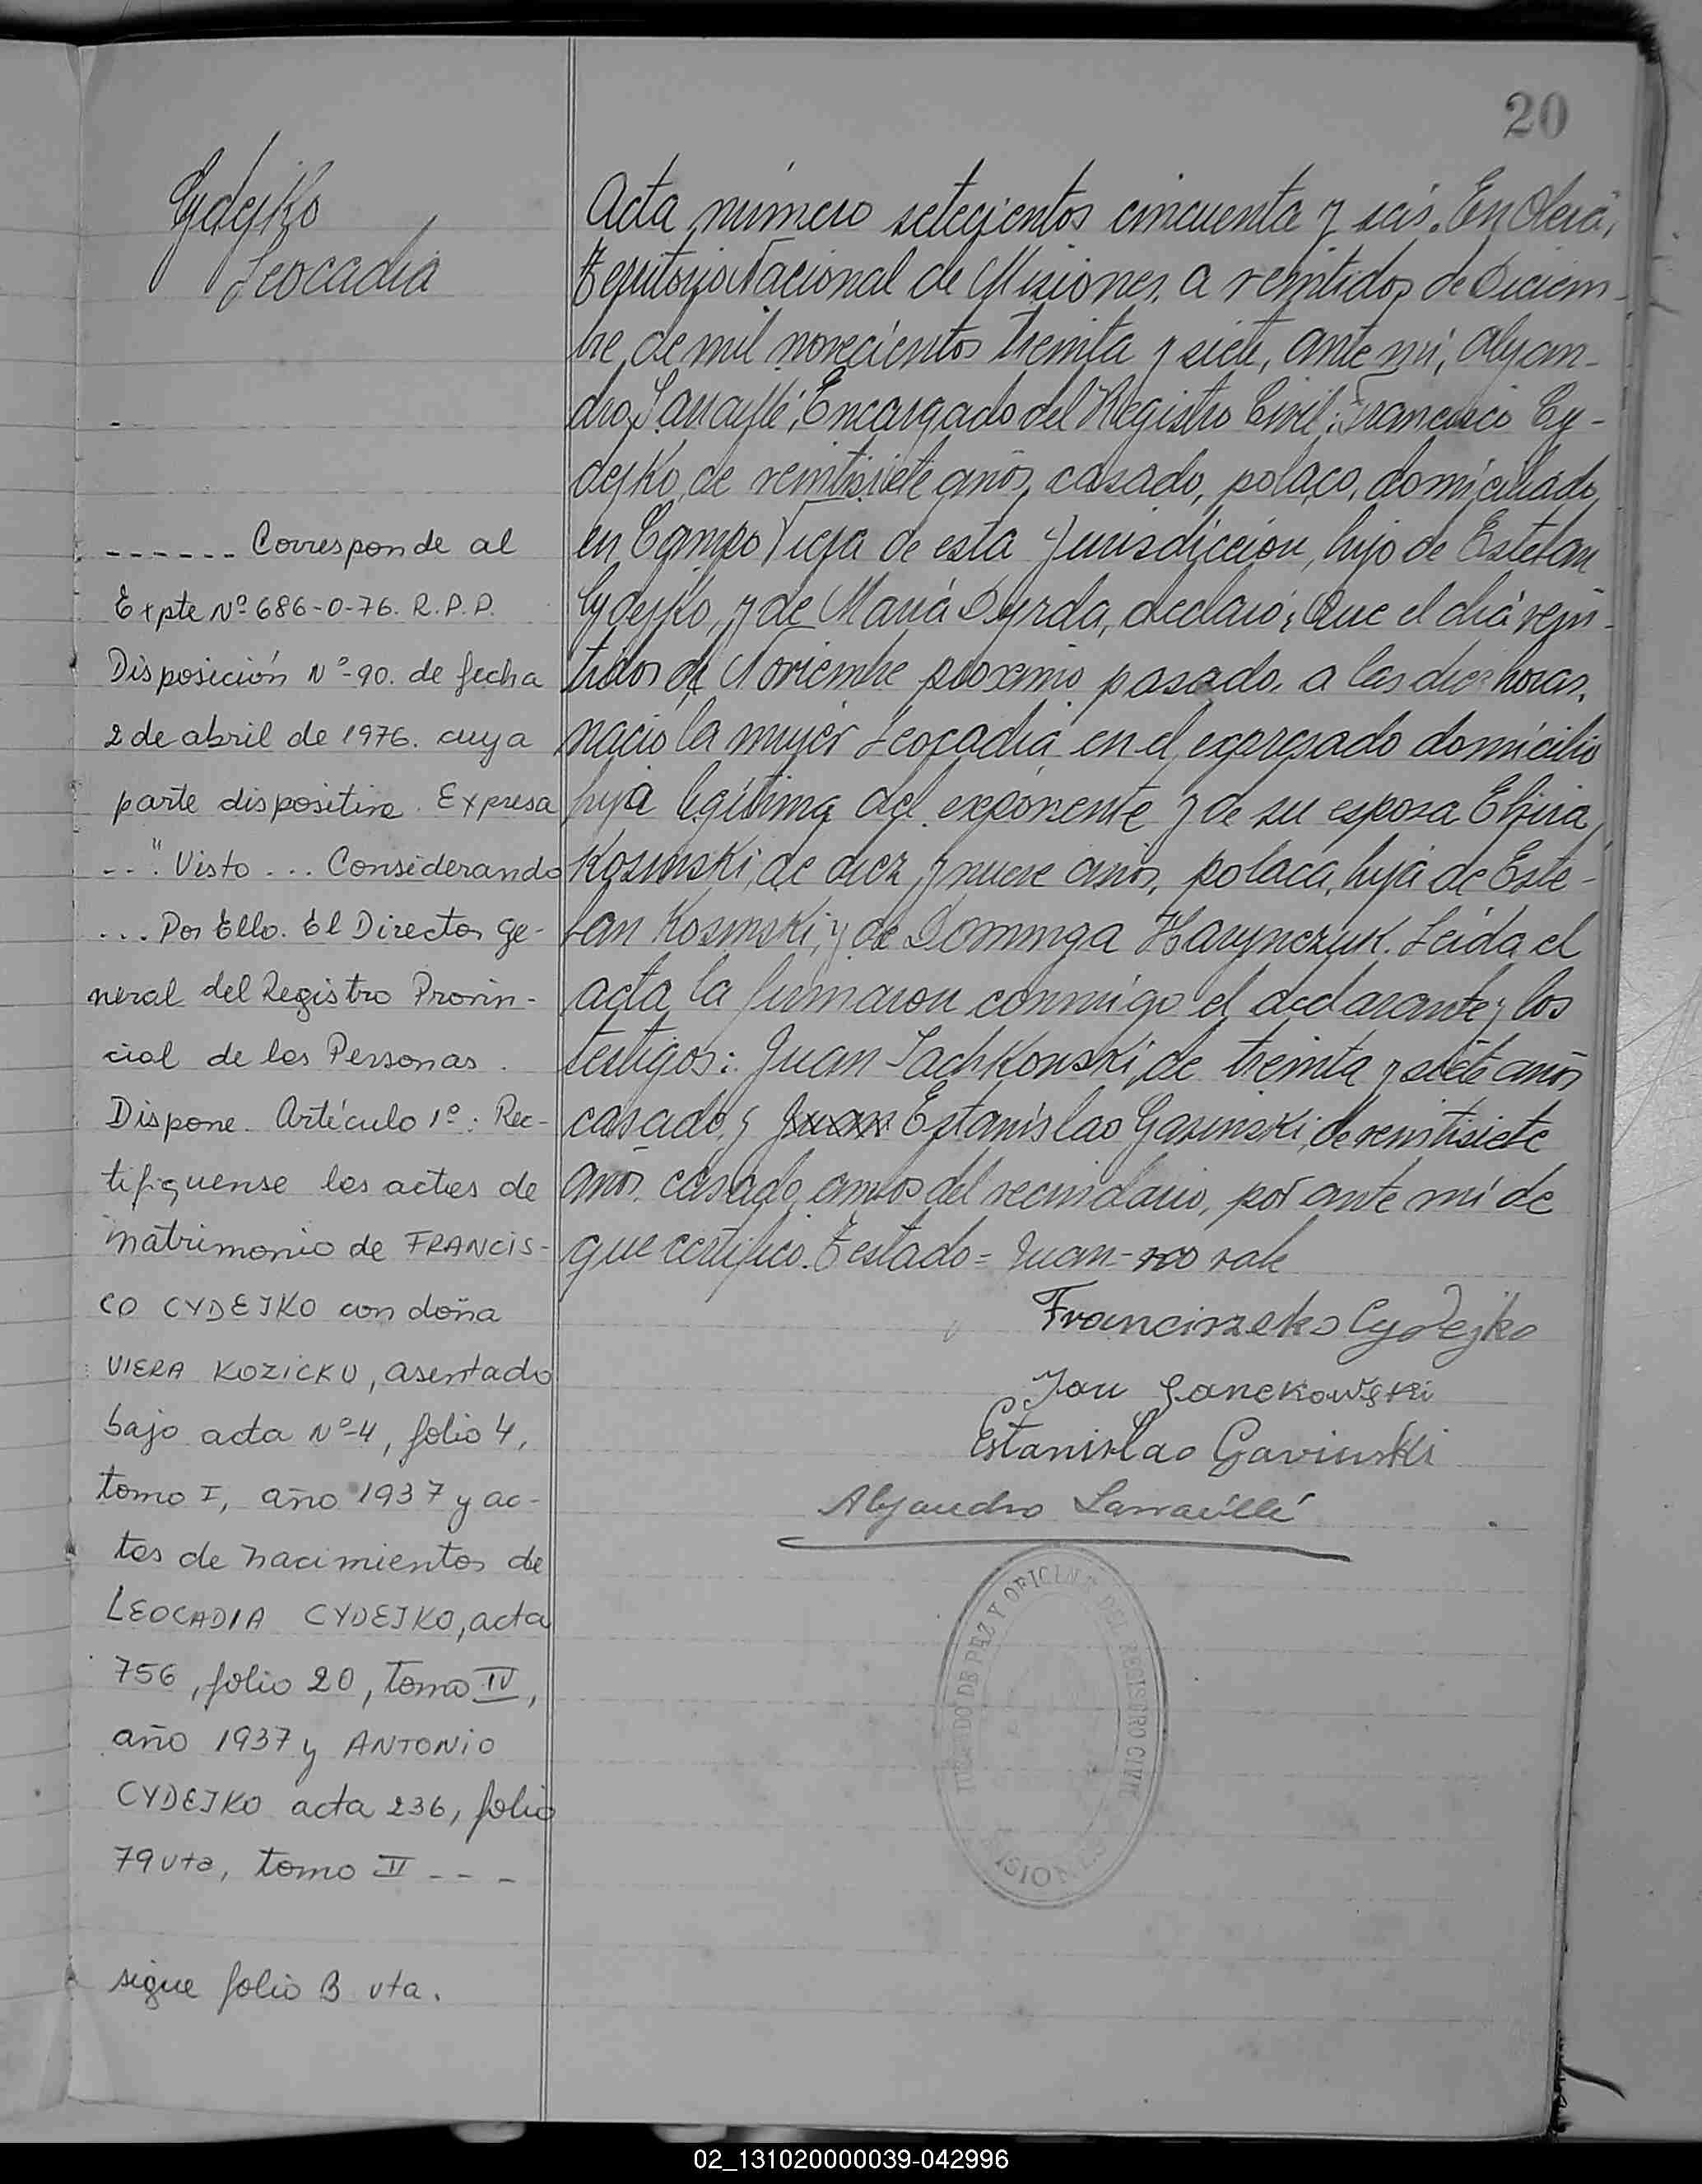 20
Cydejko
Leocadia
Acta número setecientos cincuenta y seis. En Oberá,
Territorio Nacional de Misiones, a veintidos de Diciem-
bre de mil novecientos treinta y siete, ante mí, Alejan-
dro Larraullé, Encargado del Registro Civil; Francisco Cy-
dejko, de veintisiete años, casado, polaco, domiciliado
en Campo Viera de esta Jurisdicción, hijo de Esteban
Cydejko, y de María Dyrda, declaró; Que el día vein-
tidos de Noviembre proximo pasado, a las diez horas,
nació la mujer Leocadia en el expresado domicilio
hija legítima del exponente y de su esposa Elvira
Kosinski, de diez y nueve años, polaca, hija de Este-
ban Kosinski, y de Dominga Harynczuk. Leída el
acta la firmaron conmigo el declarante y los
testigos: Juan Sachkowski, de treinta y siete años
casado, y Juan Estanislao Gasinski, de veintisiete
años, casado, ambos del vecindario, por ante mí de
que certifico. Testado = Juan - no vale
Franciszek Cydejko
Jan
Estanislao Gavinski
Alejandro Larraullé
JUZGADO DE PAZ Y OFICINA DEL REGISTRO CIVIL
MISIONES
------ Corresponde al
Expte Nº 686-0-76. R.P.P.
Disposición Nº-90. de fecha
2 de abril de 1976. cuya
parte dispositiva. Expresa
--". Visto ... Considerando
... Por Ello. El Director Ge-
neral del Registro Provin-
cial de las Personas.
Dispone. Artículo 1º: Rec-
tifiquense las actas de
matrimonio de FRANCIS-
CO CYDEJKO con doña
VIERA KOZICKU, asentado
bajo acta Nº-4, folio 4,
tomo I, año 1937 y ac-
tas de nacimientos de
LEOCADIA CYDEJKO, acta
756, folio 20, tomo IV,
año 1937 y ANTONIO
CYDEJKO acta 236, folio
79 vta, tomo II - - -
sigue folio B vta.
02_131020000039-042996